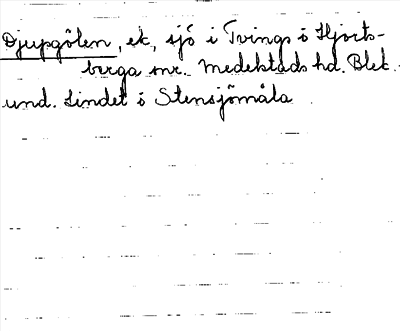 Djupgölen, ek, sjö i Tvings o Hjorts-
berga snr. Medelstads hd. Blek.
und. Lindet o Stensjömåla